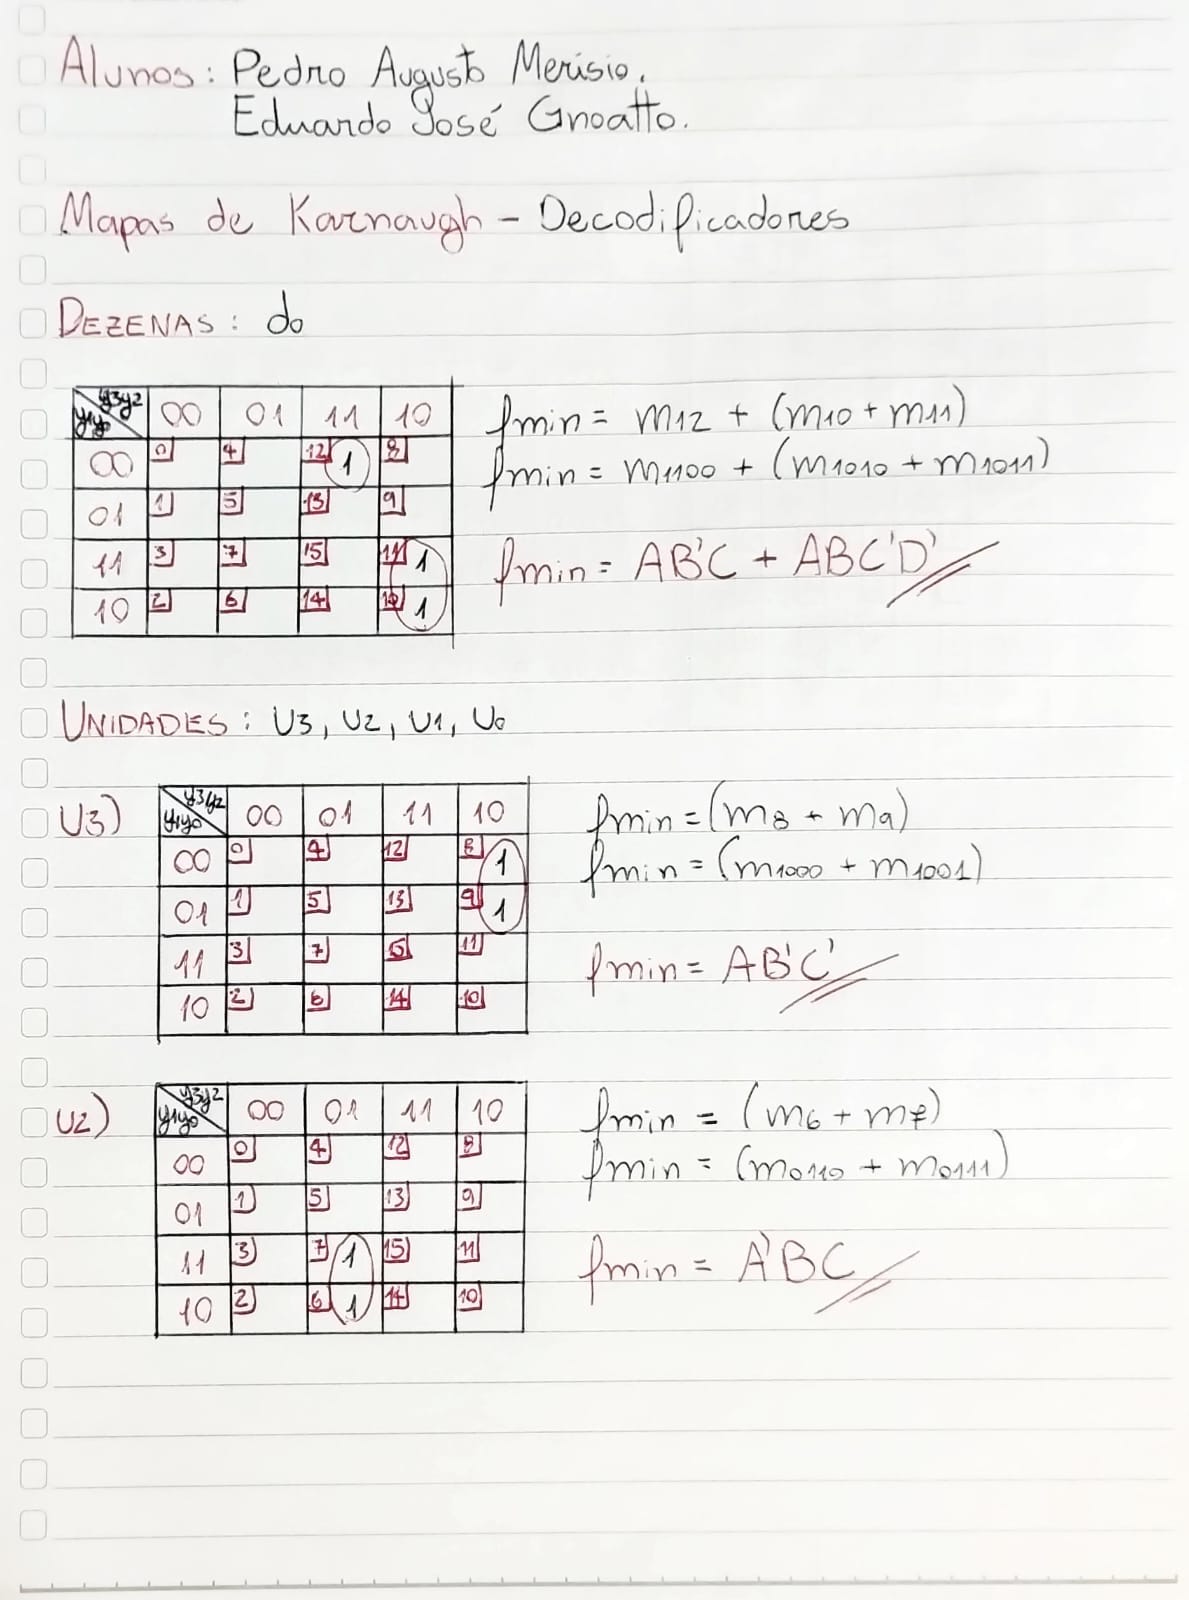 Alunos: Pedro Augusto Merisio.
Eduardo José Gnoatto.
Mapas de Karnaugh - Decodificadores
DEZENAS: d0
y3y2
y1y0 00 01 11 10
00 0 4 12 1 8
01 1 5 13 9
11 3 7 15 11 1
10 2 6 14 10 1
fmin = m12 + (m10 + m11)
fmin = m1100 + (m1010 + m1011)
fmin = AB'C + ABC'D'
UNIDADES: U3, U2, U1, U0
U3)
y3y2
y1y0 00 01 11 10
00 0 4 12 8 1
01 1 5 13 9 1
11 3 7 15 11
10 2 6 14 10
fmin = (m8 + m9)
fmin = (m1000 + m1001)
fmin = AB'C'
U2)
y3y2
y1y0 00 01 11 10
00 0 4 12 8
01 1 5 13 9
11 3 7 1 15 11
10 2 6 1 14 10
fmin = (m6 + m7)
fmin = (m0110 + m0111)
fmin = A'BC